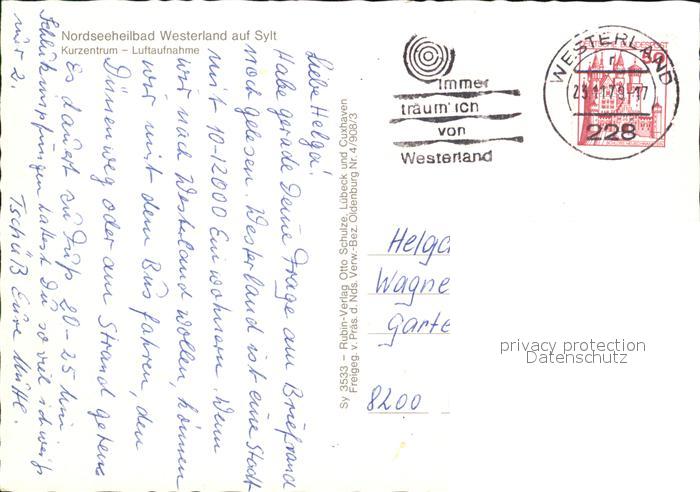 Nordseeheilbad Westerland auf Sylt
Kurzentrum – Luftaufnahme
Liebe Helga!
Habe gerade Deine Frage am Briefrand
noch gelesen. Westerland ist eine Stadt
mit 10-12000 Einwohnern. Wenn
wir nach Westerland wollen, können
wir mit dem Bus fahren, den
Dünenweg oder am Strand gehens
Es dauert zu Fuß 20-25 Min
Schluckimpfungen hattest Du so viel ich weiß
nur 2. Tschüß Eure Mutti.
Sy 3533 – Rubin-Verlag Otto Schulze, Lübeck und Cuxhaven
Freigeg. v. Präs. d. Nds. Verw.-Bez. Oldenburg Nr. 4/908/3
immer
träum' ich
von
Westerland
WESTERLAND
23.11.79-17
228
Helga
Wagne
Garte
8200
privacy protection
Datenschutz